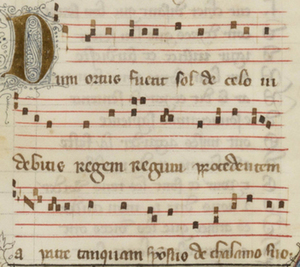 Dum ortus fuerit sol de celo ui
debitis regem regum procedentem
a patre tanquam sponsus de thalamo suo.